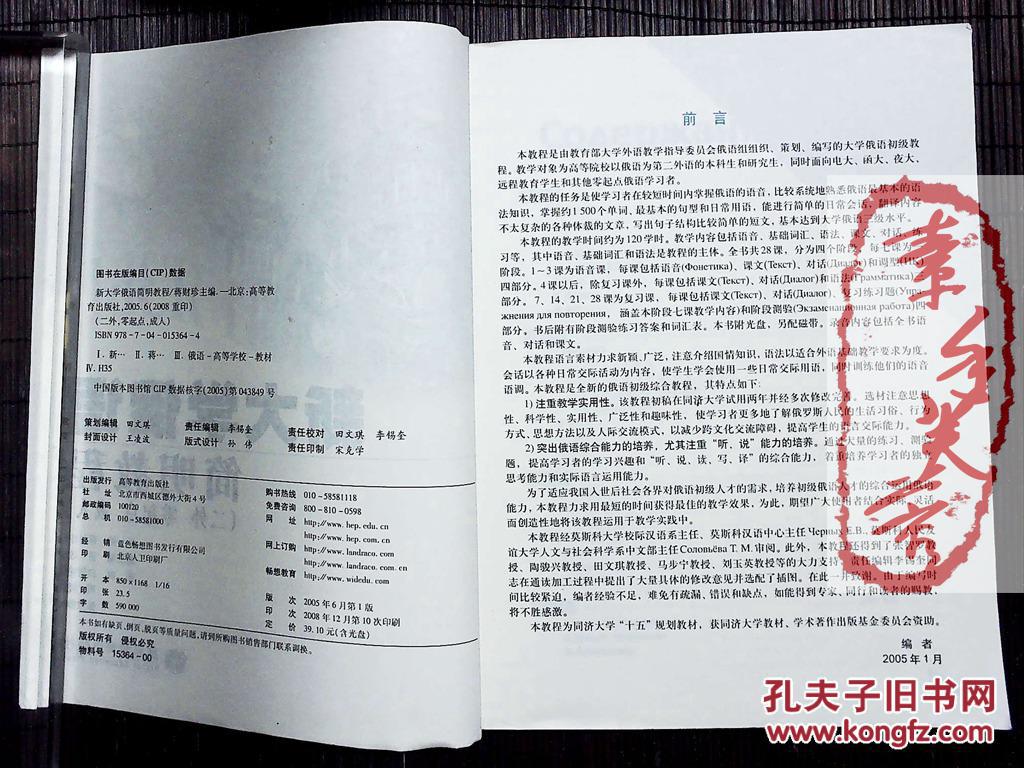 图书在版编目(CIP)数据
新大学俄语简明教程/蒋财珍主编.—北京:高等教
育出版社,2005.6(2008重印)
(二外,零起点,成人)
ISBN 978-7-04-015364-4
Ⅰ.新… Ⅱ.蒋… Ⅲ.俄语-高等学校-教材
Ⅳ.H35
中国版本图书馆CIP数据核字(2005)第043849号
策划编辑 田文琪 责任编辑 李锡奎 责任校对 田文琪 李锡奎
封面设计 王凌波 版式设计 孙伟 责任印制 宋克学
出版发行 高等教育出版社
社址 北京市西城区德外大街4号
邮政编码 100120
总机 010-58581000
经销 蓝色畅想图书发行有限公司
印刷 北京人卫印刷厂
开本 850×1168 1/16
印张 23.5
字数 590 000
购书热线 010-58581118
免费咨询 800-810-0598
网址 http://www.hep.edu.cn
http://www.hep.com.cn
网上订购 http://www.landraco.com
http://www.landraco.com.cn
畅想教育 http://www.widedu.com
版次 2005年6月第1版
印次 2008年12月第10次印刷
定价 39.10元(含光盘)
本书如有缺页、倒页、脱页等质量问题,请到所购图书销售部门联系调换。
版权所有 侵权必究
物料号 15364-00
前言
本教程是由教育部大学外语教学指导委员会俄语组组织、策划、编写的大学俄语初级教
程。教学对象为高等院校以俄语为第二外语的本科生和研究生,同时面向电大、函大、夜大、
远程教育学生和其他零起点俄语学习者。
本教程的任务是使学习者在较短时间内掌握俄语的语音,比较系统地熟悉俄语最基本的语
法知识,掌握约1 500个单词、最基本的句型和日常用语,能进行简单的日常会话,翻译内容
不太复杂的各种体裁的文章,写出句子结构比较简单的短文,基本达到大学俄语三级水平。
本教程的教学时间约为120学时。教学内容包括语音、基础词汇、语法、课文、对话、练
习等,其中语音、基础词汇和语法是教程的主体。全书共28课,分为四个阶段,每七课为一
阶段。1~3课为语音课,每课包括语音(Фонетика)、课文(Текст)、对话(Диалог)和调型(ИК)
四部分。4课以后,除复习课外,每课包括课文(Текст)、对话(Диалог)和语法(Грамматика)三
部分。7、14、21、28课为复习课,每课包括课文(Текст)、对话(Диалог)、复习练习题(Упра-
жнения для повторения, 涵盖本阶段七课教学内容)和阶段测验(Экзаменационная работа)四
部分。书后附有阶段测验练习答案和词汇表。本书附光盘,另配磁带。录音内容包括全书语
音、对话和课文。
本教程语言素材力求新颖、广泛,注意介绍国情知识,语法以适合外语基础教学要求为度。
会话以各种日常交际活动为内容,使学生学会使用一些日常交际用语,同时训练他们的语音
语调。本教程是全新的俄语初级综合教程,其特点如下:
1) 注重教学实用性。该教程初稿在同济大学试用两年并经多次修改完善。选材注意思想
性、科学性、实用性、广泛性和趣味性,使学习者更多地了解俄罗斯人民的生活习俗、行为
方式、思想方法以及人际交流模式,以减少跨文化交流障碍,提高学生的语言交际能力。
2) 突出俄语综合能力的培养,尤其注重“听、说”能力的培养。通过大量的练习、测验
题,提高学习者的学习兴趣和“听、说、读、写、译”的综合能力,着重培养学习者的独立
思考能力和实际语言运用能力。
为了适应我国入世后社会各界对俄语初级人才的需求,培养初级俄语人才的综合运用俄语
能力,本教程力求用最短的时间获得最佳的教学效果,为此,期望广大使用者结合实际,灵活
而创造性地将该教程运用于教学实践中。
本教程经莫斯科大学校际汉语系主任、莫斯科汉语中心主任Черных Е.В.,莫斯科人民友
谊大学人文与社会科学系中文部主任Соловьёва Т. М.审阅。此外,本教程还得到了张智罗教
授、陶骏兴教授、田文琪教授、马步宁教授、刘玉英教授等的大力支持。责任编辑李锡奎同
志在通读加工过程中提出了大量具体的修改意见并选配了插图。在此一并致谢。由于编写时
间比较紧迫,编者经验不足,难免有疏漏、错误和缺点,如能得到专家、同行和读者的赐教,
将不胜感激。
本教程为同济大学“十五”规划教材,获同济大学教材、学术著作出版基金委员会资助。
编者
2005年1月
孔夫子旧书网
www.kongfz.com